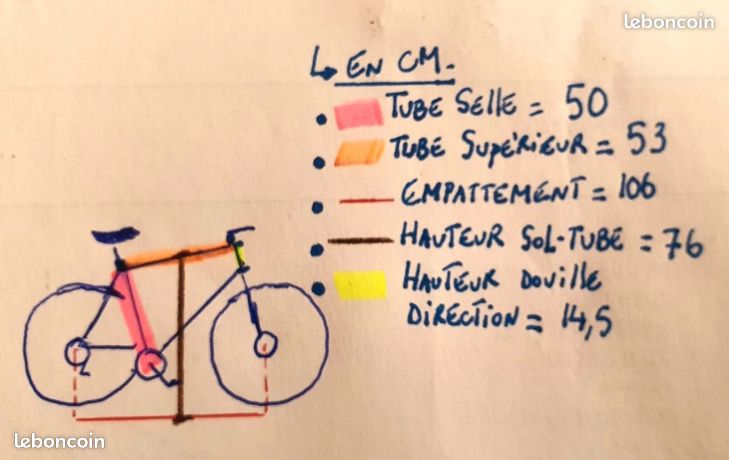 leboncoin
↳ EN CM.
• TUBE SELLE = 50
• TUBE SUPÉRIEUR = 53
• EMPATTEMENT = 106
• HAUTEUR SOL-TUBE = 76
• HAUTEUR DOUILLE
DIRECTION = 14,5
leboncoin